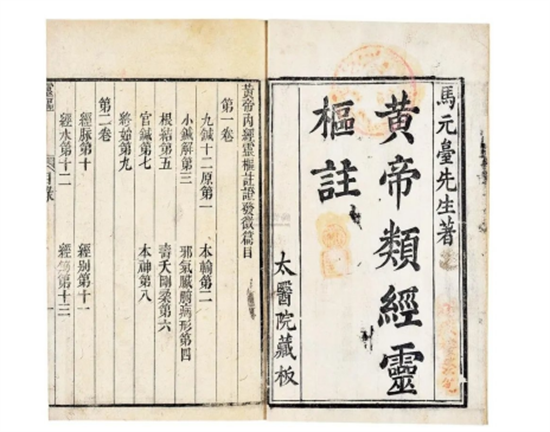 馬元臺先生著
黄帝類經靈
樞註
太醫院藏板
黃帝內經靈樞註證發微篇目
第一卷
九鍼十二原第一
本輸第二
小鍼解第三
邪氣臟腑病形第四
根結第五
壽夭剛柔第六
官鍼第七
本神第八
終始第九
第二卷
經脉第十
經别第十一
經水第十二
經筋第十三
靈樞
目錄
一